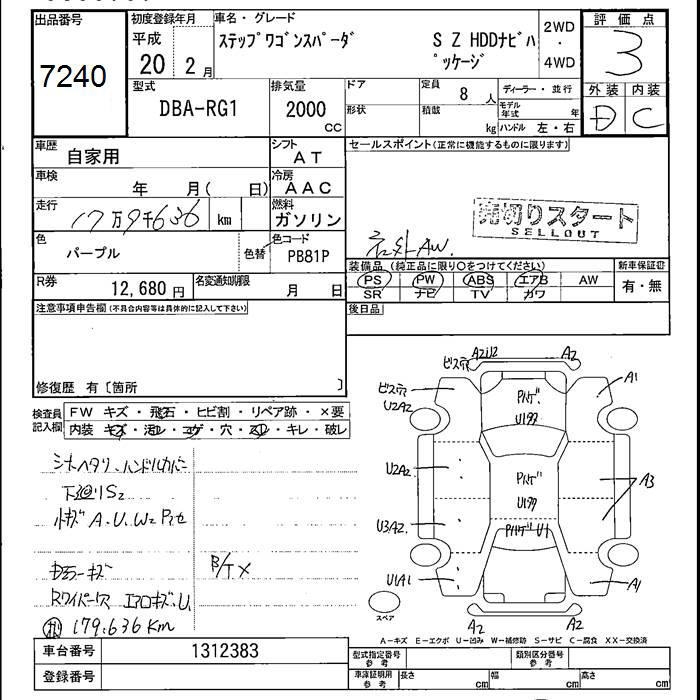 出品番号
7240
初度登録年月
平成
20 2月
車名・グレード
ステップワゴンスパーダ S Z HDDナビパッケージ
2WD
・
4WD
評価点
3
外装 内装
D C
型式
DBA-RG1
排気量
2000
cc
ドア
形状
定員
8 人
積載
kg
ディーラー・並行
モデル年式 年
ハンドル 左・右
車歴
自家用
シフト
AT
セールスポイント(正常に機能するものに限ります)
車検
年 月( 日)
冷房
AAC
走行
17万9千636 km
燃料
ガソリン
売切りスタート
SELLOUT
社外AW.
色
パープル
色替
色コード
PB81P
装備品 (純正品に限り○をつけてください)
PS PW ABS エアB AW
SR ナビ TV カワ
新車保証書
有・無
R券
12,680 円
名変通知期限
月 日
後日品
注意事項申告欄(不具合内容等は具体的に記入して下さい)
修復歴 有〔箇所 〕
検査員
記入欄
FW キズ・飛石・ヒビ割・リペア跡・×要
内装 キズ・汚レ・コゲ・穴・スレ・キレ・破レ
シートヘタリ、ハンドルカバー
下回りS2
小キズA.U.W2
B/TX
Rワイパー穴 エアロキズ.U
179.636Km
A2U2 A2
ビス穴
ビス穴
U2A2
A1
Pハゲ
U1多
U2A2
Pハゲ
U1多
A3
U3A2
PハゲU1
U1A1
A1
A2 A2
スペア
A-キズ E-エクボ U-凹み W-補修跡 S-サビ C-腐食 XX-交換済
車台番号
1312383
登録番号
型式指定番号
参考
類別区分番号
参考
車庫証明用
参考
長さ cm
幅 cm
高さ cm